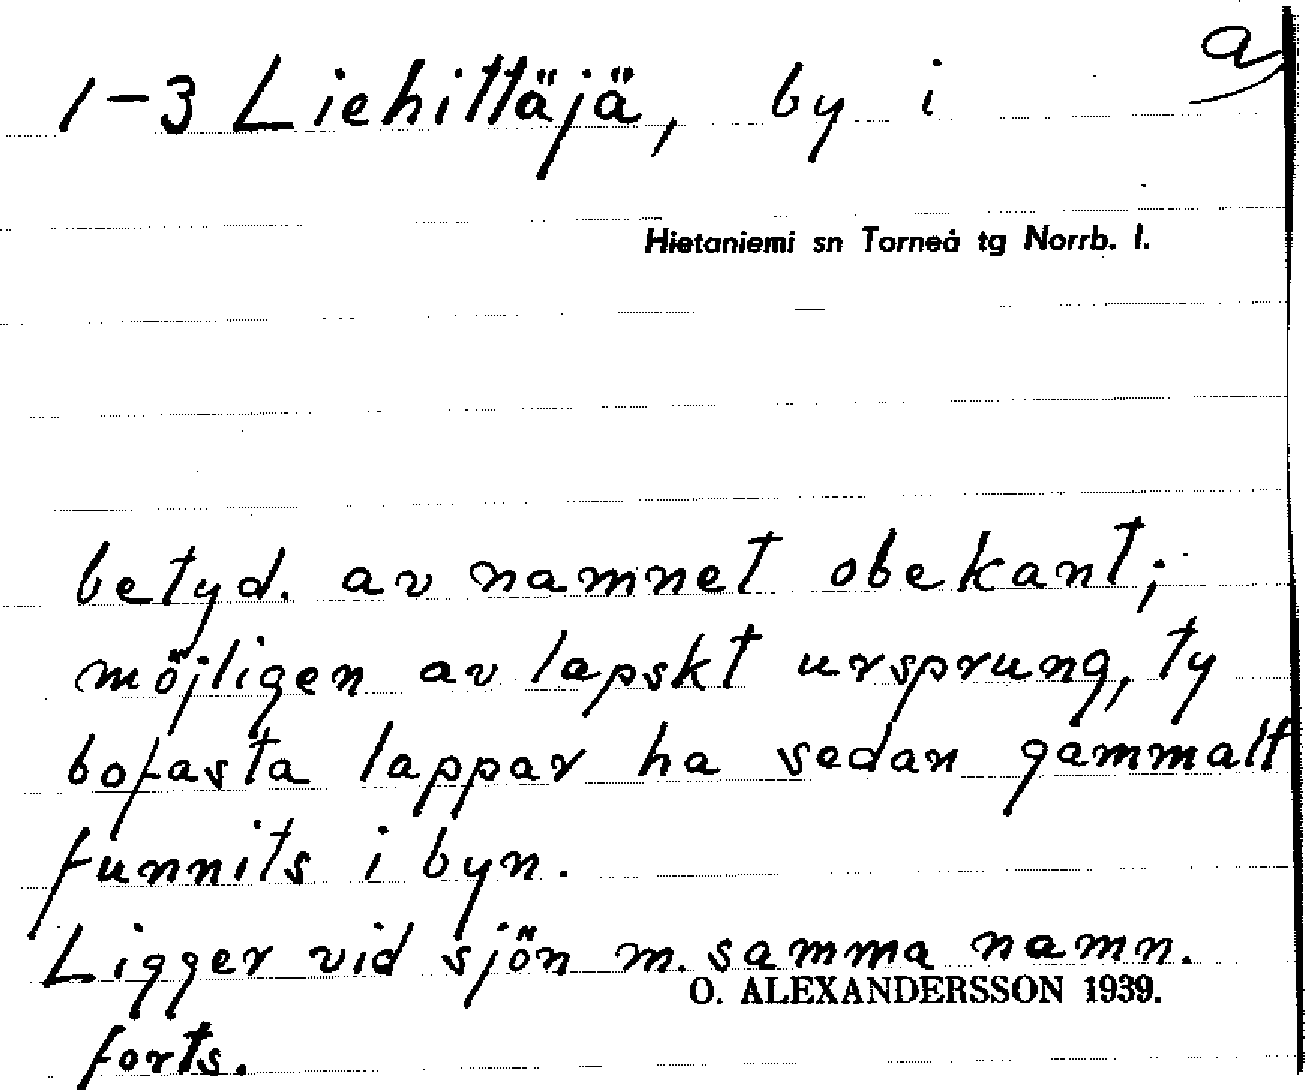 a
1-3 Liehittäjä, by i
Hietaniemi sn Torneå tg Norrb. l.
betyd. av namnet obekant;
möjligen av lapskt ursprung, ty
bofasta lappar ha sedan gammalt
funnits i byn.
Ligger vid sjön m. samma namn.
O. ALEXANDERSSON 1939.
forts.